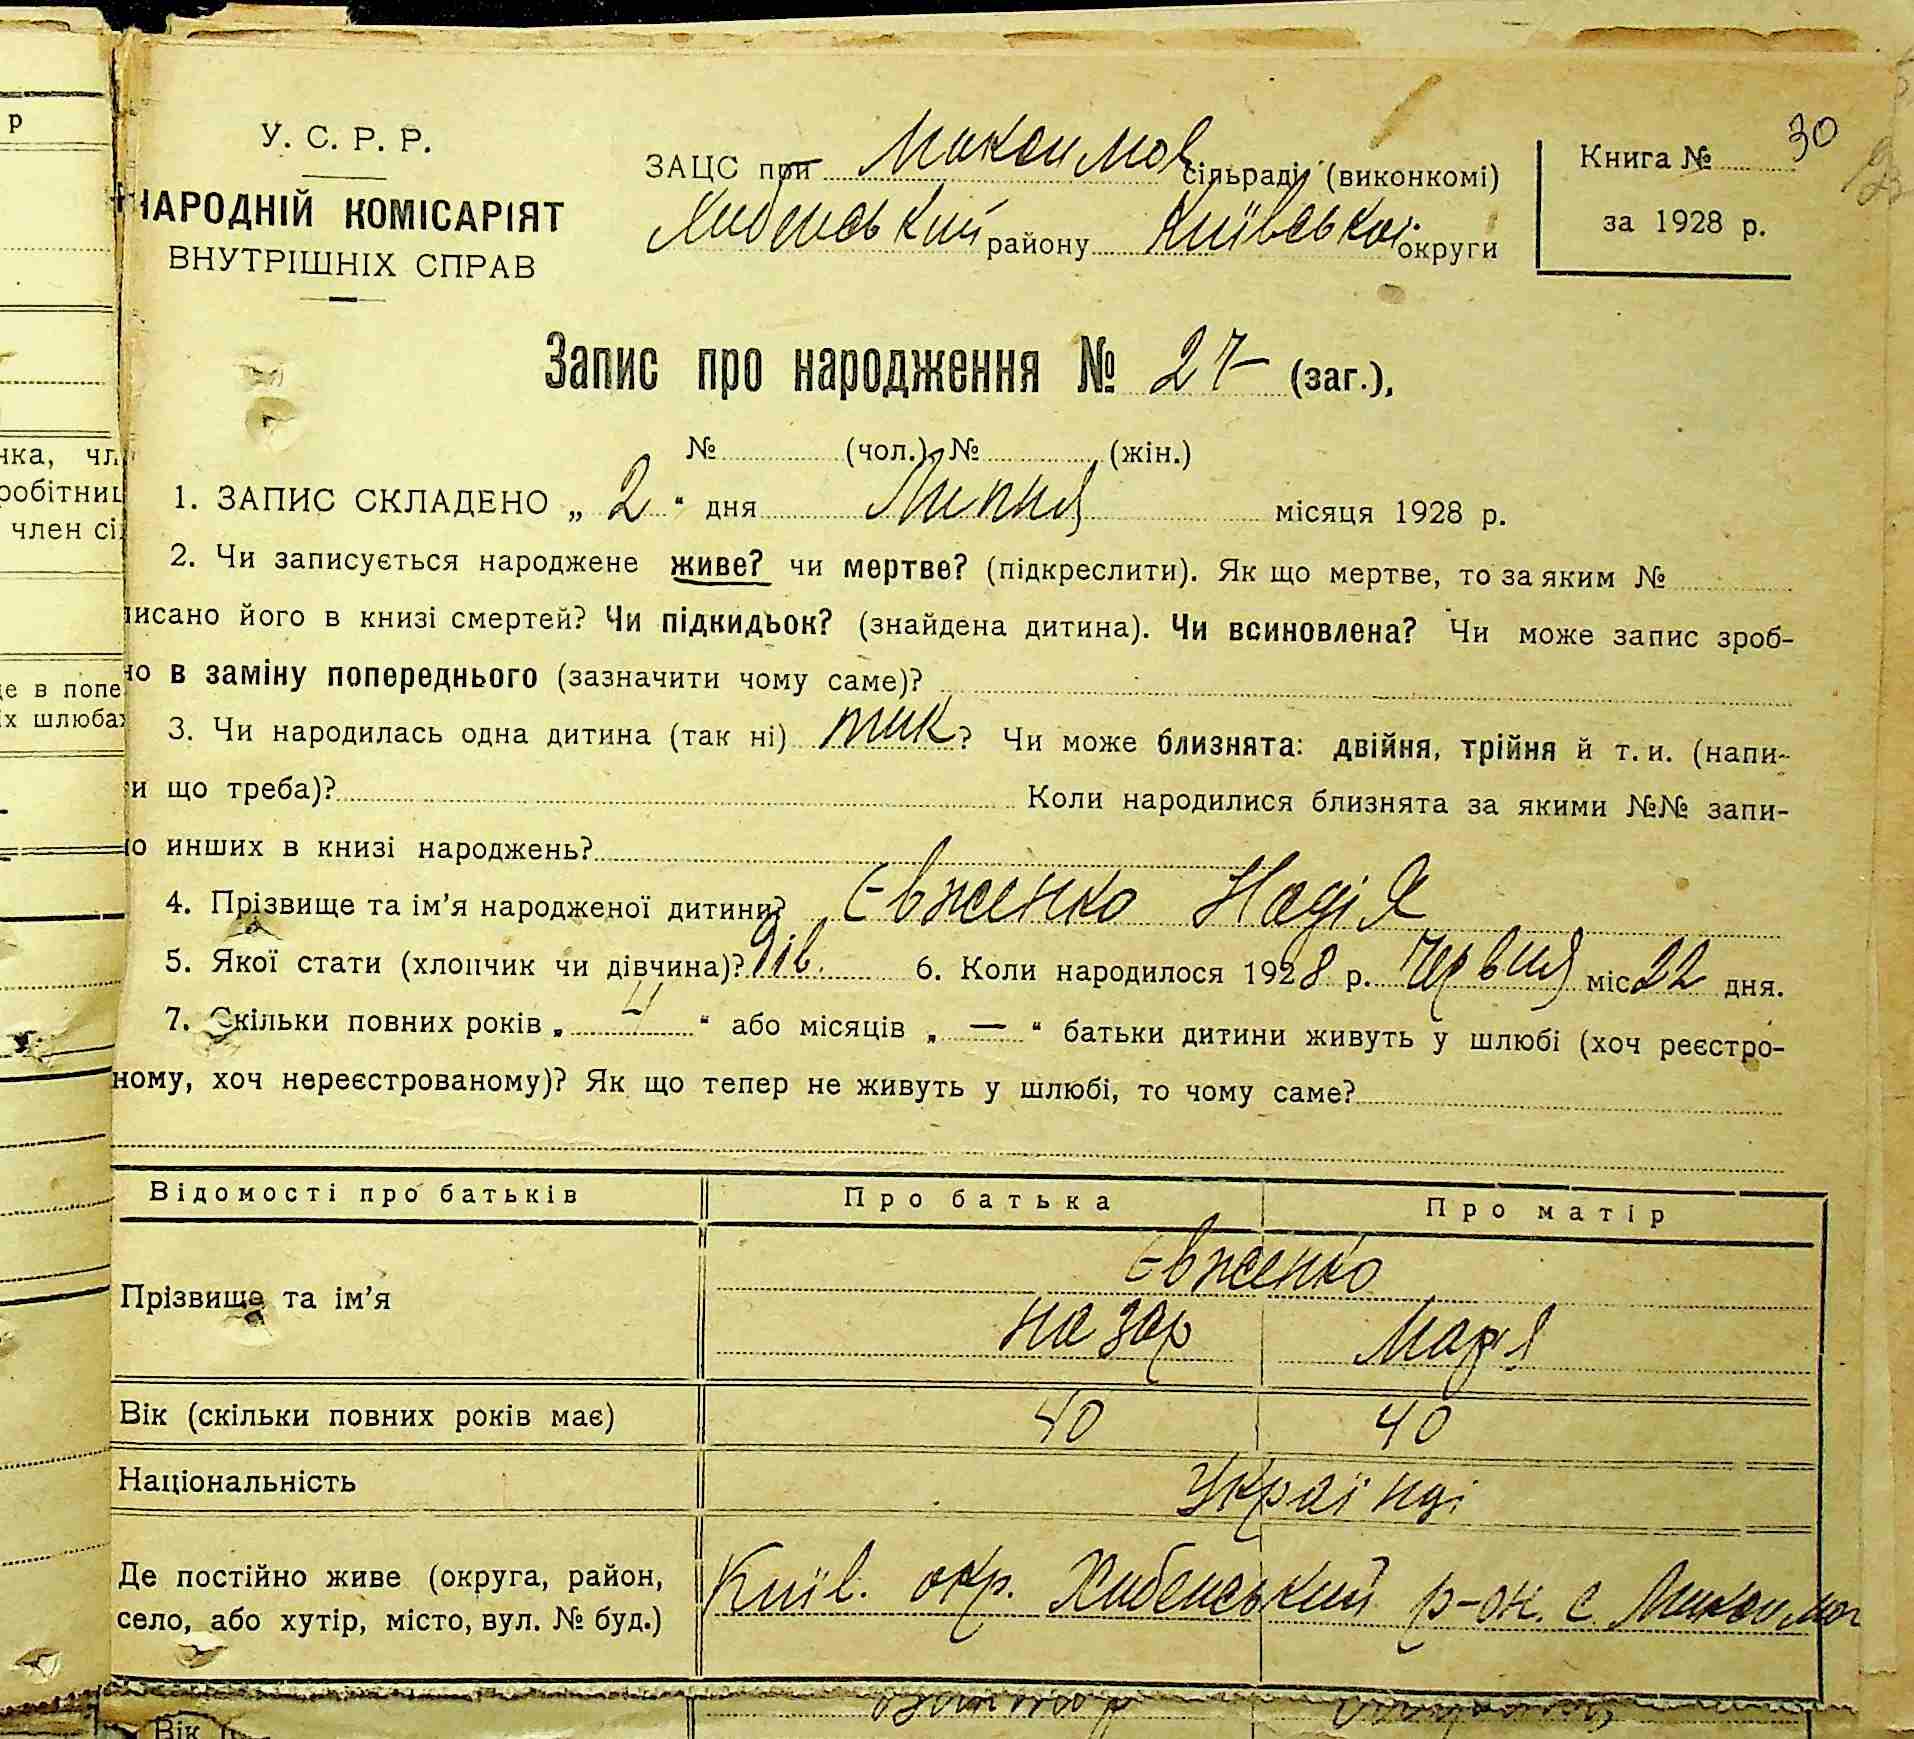 р
У. С. Р. Р.
НАРОДНІЙ КОМІСАРІЯТ
ВНУТРІШНІХ СПРАВ
ЗАЦС при Максимов сільраді (виконкомі)
Хабенський району Київської округи
Книга № 30
за 1928 р.
Запис про народження № 27 (заг.),
№ (чол.) № (жін.)
1. ЗАПИС СКЛАДЕНО „ 2 “ дня Липня місяця 1928 р.
2. Чи записується народжене живе? чи мертве? (підкреслити). Як що мертве, то за яким №
писано його в книзі смертей? Чи підкидьок? (знайдена дитина). Чи всиновлена? Чи може запис зроб-
но в заміну попереднього (зазначити чому саме)?
3. Чи народилась одна дитина (так ні) так ? Чи може близнята: двійня, трійня й т. и. (напи-
и що треба)? Коли народилися близнята за якими №№ запи-
но инших в книзі народжень?
4. Прізвище та ім’я народженої дитини? Євженко Надія
5. Якої стати (хлопчик чи дівчина)? Дів. 6. Коли народилося 1928 р. Червня міс 22 дня.
7. Скільки повних років „ 4 “ або місяців „ — “ батьки дитини живуть у шлюбі (хоч реєстро-
ному, хоч нереєстрованому)? Як що тепер не живуть у шлюбі, то чому саме?
Відомості про батьків Про батька Про матір
Прізвище та ім’я Євженко
Назар Мар'я
Вік (скільки повних років має) 40 40
Національність Українці
Де постійно живе (округа, район,
село, або хутір, місто, вул. № буд.)
Київ. окр. Хабенський р-он. с Максимов
Вік
нка, чл
робітниц
член сі
де в попе
іх шлюбах